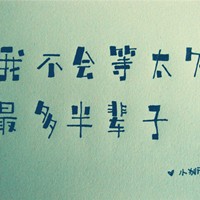 我不会等太久
最多半辈子
♥小